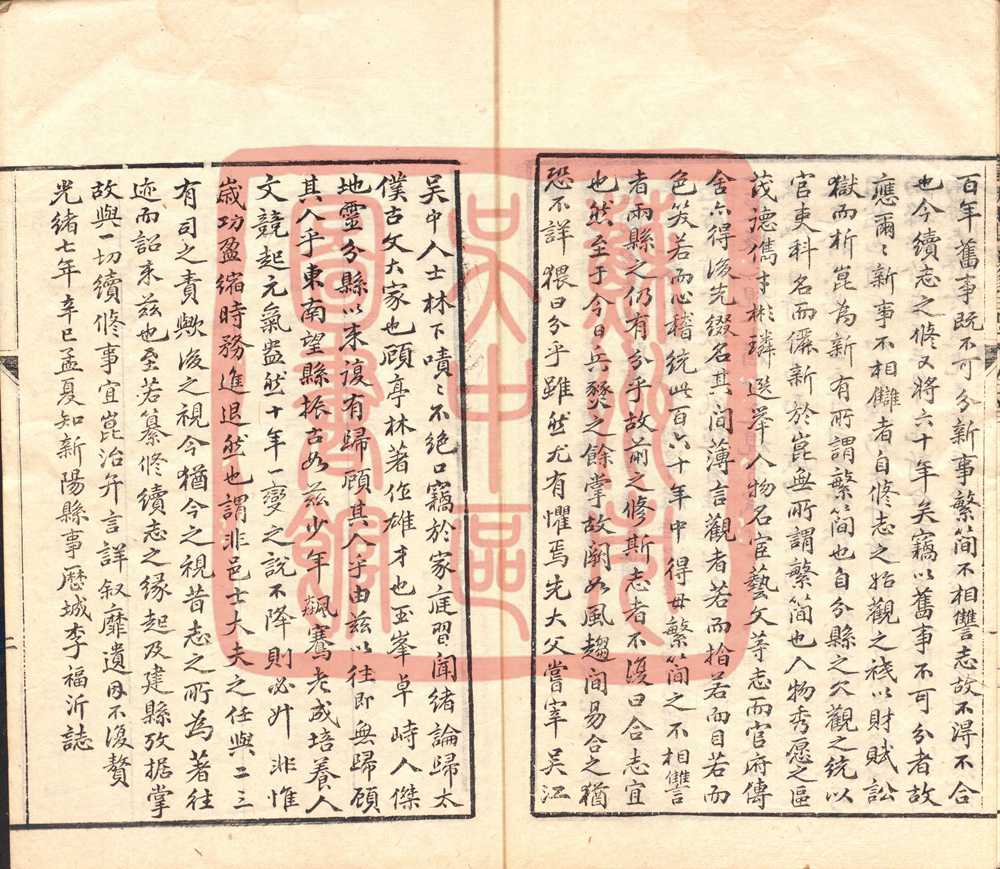 百年舊事既不可分新事繁简不相讐志故不得不合
也今續志之修又將六十年矣竊以舊事不可分者故
應爾爾新事不相讎者自修志之始觀之祇以財賦訟
獄而析崑為新有所謂繁简也自分縣之久觀之統以
官吏科名而儷新於崑無所謂繁简也人物秀愿之區
茂德儁才彬璘選舉人物名宦藝文荨志而官府傳
舍亦得後先綴名其間薄言觀者若而拾若而目若而
色笑若而心稽統此百六十年中得毋繁简之不相讐
者兩縣之仍有分乎故前之修斯志者不復曰合志宜
也然至于今日兵燹之餘掌故闕如風趨間易合之猶
恐不詳猥曰分乎雖然尤有懼焉先大父嘗宰吴江
吳中人士林下嘖嘖不絕口竊於家庭習聞緒論歸太
僕古文大家也顧亭林著作雄才也玉峯卓峙人傑
地靈分縣以来復有歸顧其人乎由兹以往即無歸顧
其人乎東南望縣振古如兹少年飆騫老成培養人
文競起元氣盎然十年一變之說不降則必升非惟
歲功盈縮時務進退然也謂非邑士大夫之任與二三
有司之責歟後之視今猶今之視昔志之所為著往
迹而詔来兹也至若纂修續志之缘起及建縣攷据掌
故與一切續修事宜崑治弁言詳叙靡遺因不復贅
光緒七年辛巳孟夏知新陽縣事歷城李福沂誌
二
蘇州市
吴中區
圖書館